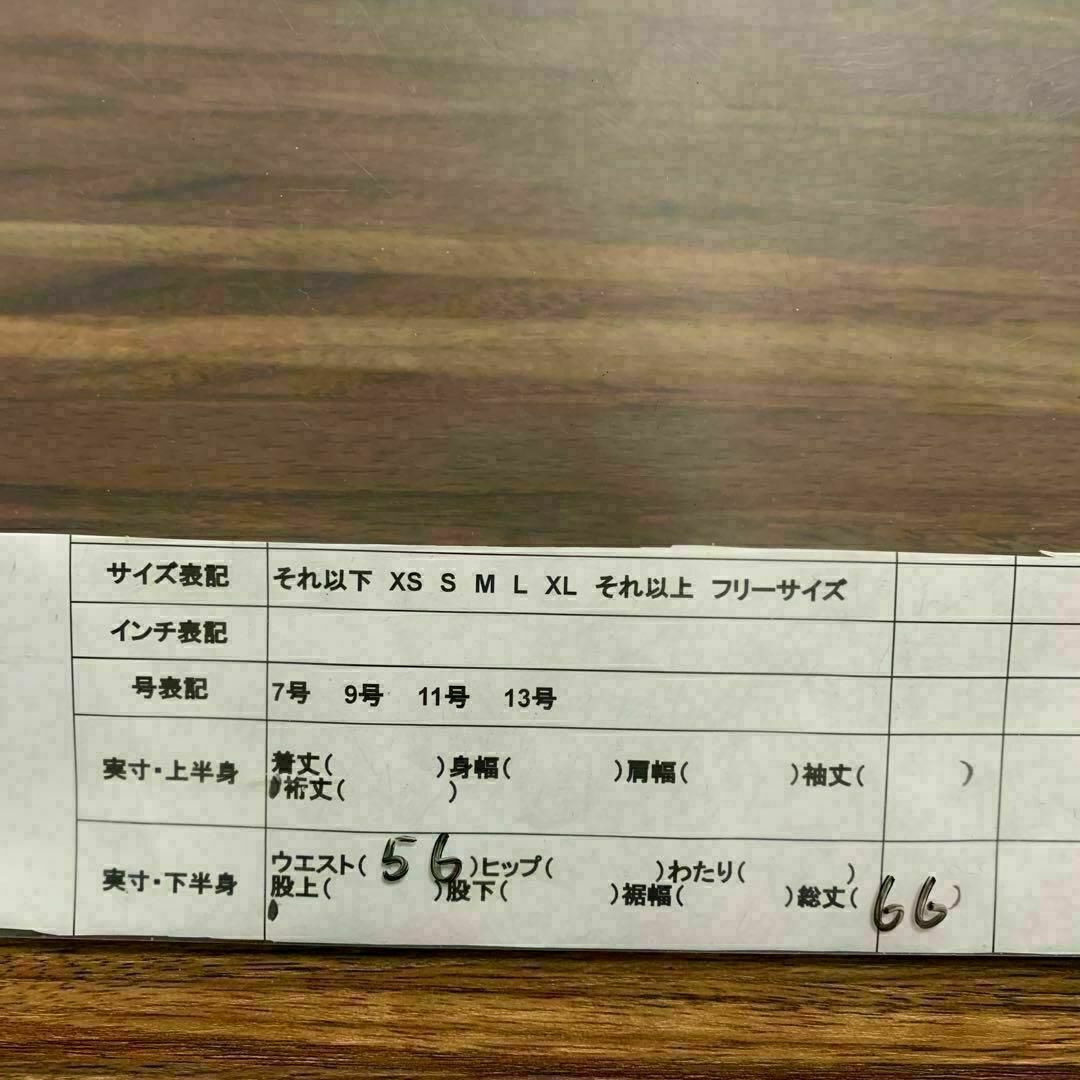 サイズ表記 それ以下 XS S M L XL それ以上 フリーサイズ
インチ表記
号表記 7号 9号 11号 13号
実寸・上半身 着丈( )身幅( )肩幅( )袖丈( )
裄丈( )
実寸・下半身 ウエスト( 56 )ヒップ( )わたり( )
股上( )股下( )裾幅( )総丈( 66 )